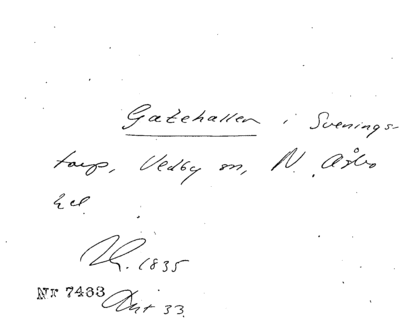 Gatehallen i Svenings-
torp, Vedby sn, N. Åsbo
hd.
Th. 1835
Nr 7433 Avt 33.